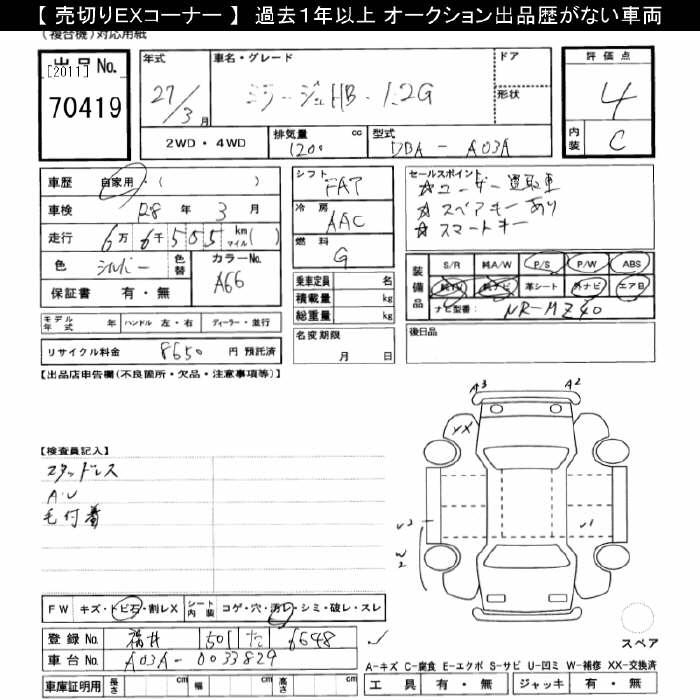 【 売切りEXコーナー 】 過去１年以上 オークション出品歴がない車両
（複合機）対応用紙
出品No.
[2011]
70419
年式
27/3月
車名・グレード
ミラージュHB・1.2G
ドア
形状
評価点
4
内装
C
2WD・4WD
排気量 cc
1200
型式
DBA - A03A
車歴 自家用・( )
車検 R8年 3月
走行 6万 6千 5 0 5 km マイル ( )
色 シルバー
色替
カラーNo.
A66
保証書 有・無
シフト
FAT
冷房
AAC
燃料
G
乗車定員 名
積載量 kg
総重量 kg
セールスポイント
☆ユーザー買取車
☆スペアキーあり
☆スマートキー
装備品
S/R 純A/W P/S P/W ABS
純TV 純ナビ 革シート 外ナビ エアB
ナビ型番 NR-MZ40
モデル年式 年 ハンドル 左・右 ディーラー・並行
名変期限
月 日
後日品
リサイクル料金 8650 円 預託済
【出品店申告欄(不良箇所・欠品・注意事項等)】
A3
A2
XX
【検査員記入】
スタッドレス
A.U
毛付着
U2
W2
U1
FW キズ・トビ石・割レX
シート内装 コゲ・穴・汚レ・シミ・破レ・スレ
登録No. 福井 501 た 6548
車台No. A03A-0033829
車庫証明用 長さ cm 幅 cm 高さ cm
スペア
A-キズ C-腐食 E-エクボ S-サビ U-凹ミ W-補修 XX-交換済
工具 有・無 ジャッキ 有・無